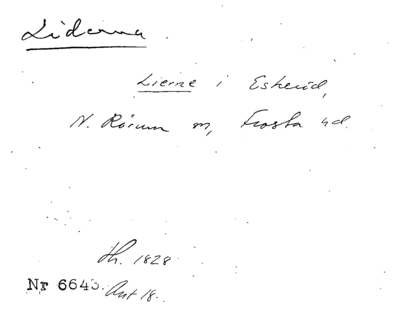 Liderna
Lierne i Eskeröd,
N. Rörum sn, Frosta hd.
th. 1828
Nr 6643. Ant 18.